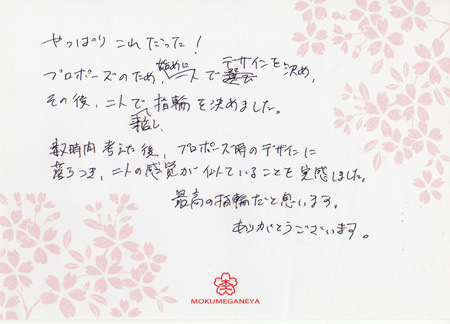 やっぱりこれだった!
プロポーズのため、始めに一人でデザインを決め、
その後、二人で指輪を決めました。
数時間考えた後、プロポーズ時のデザインに
落ちつき、二人の感覚が似ていることを実感しました。
最高の指輪だと思います。
ありがとうございます。
MOKUMEGANEYA